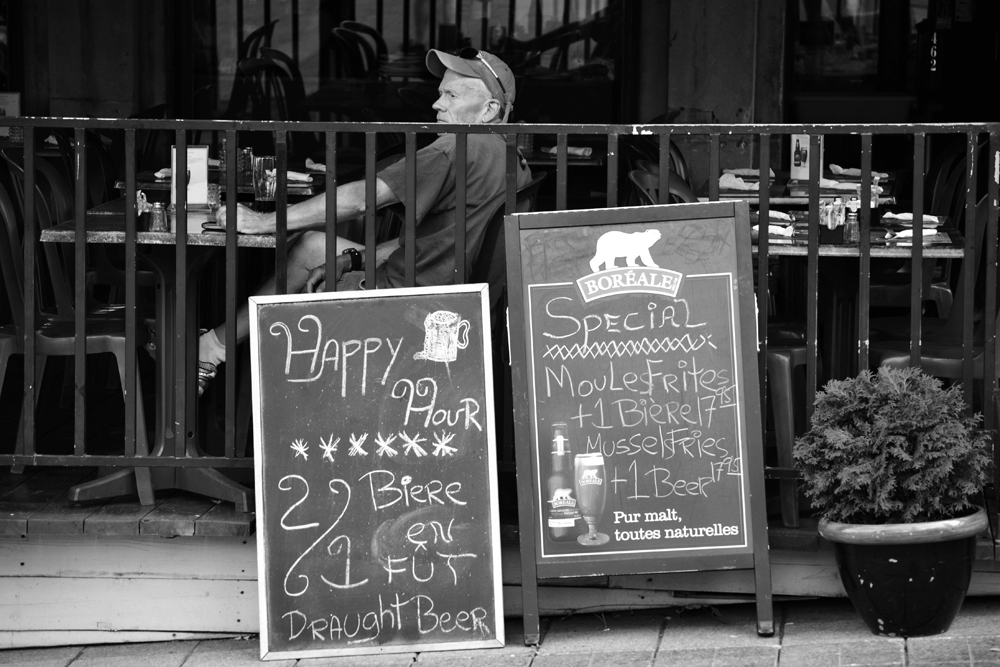 462
Happy
Hour
******
2 Bière
en
1 FÛT
Draught Beer
BORÉALE
Special
Moules Frites
+1 Bière 17 95
Mussel Fries
+1 Beer 17 95
Pur malt,
toutes naturelles